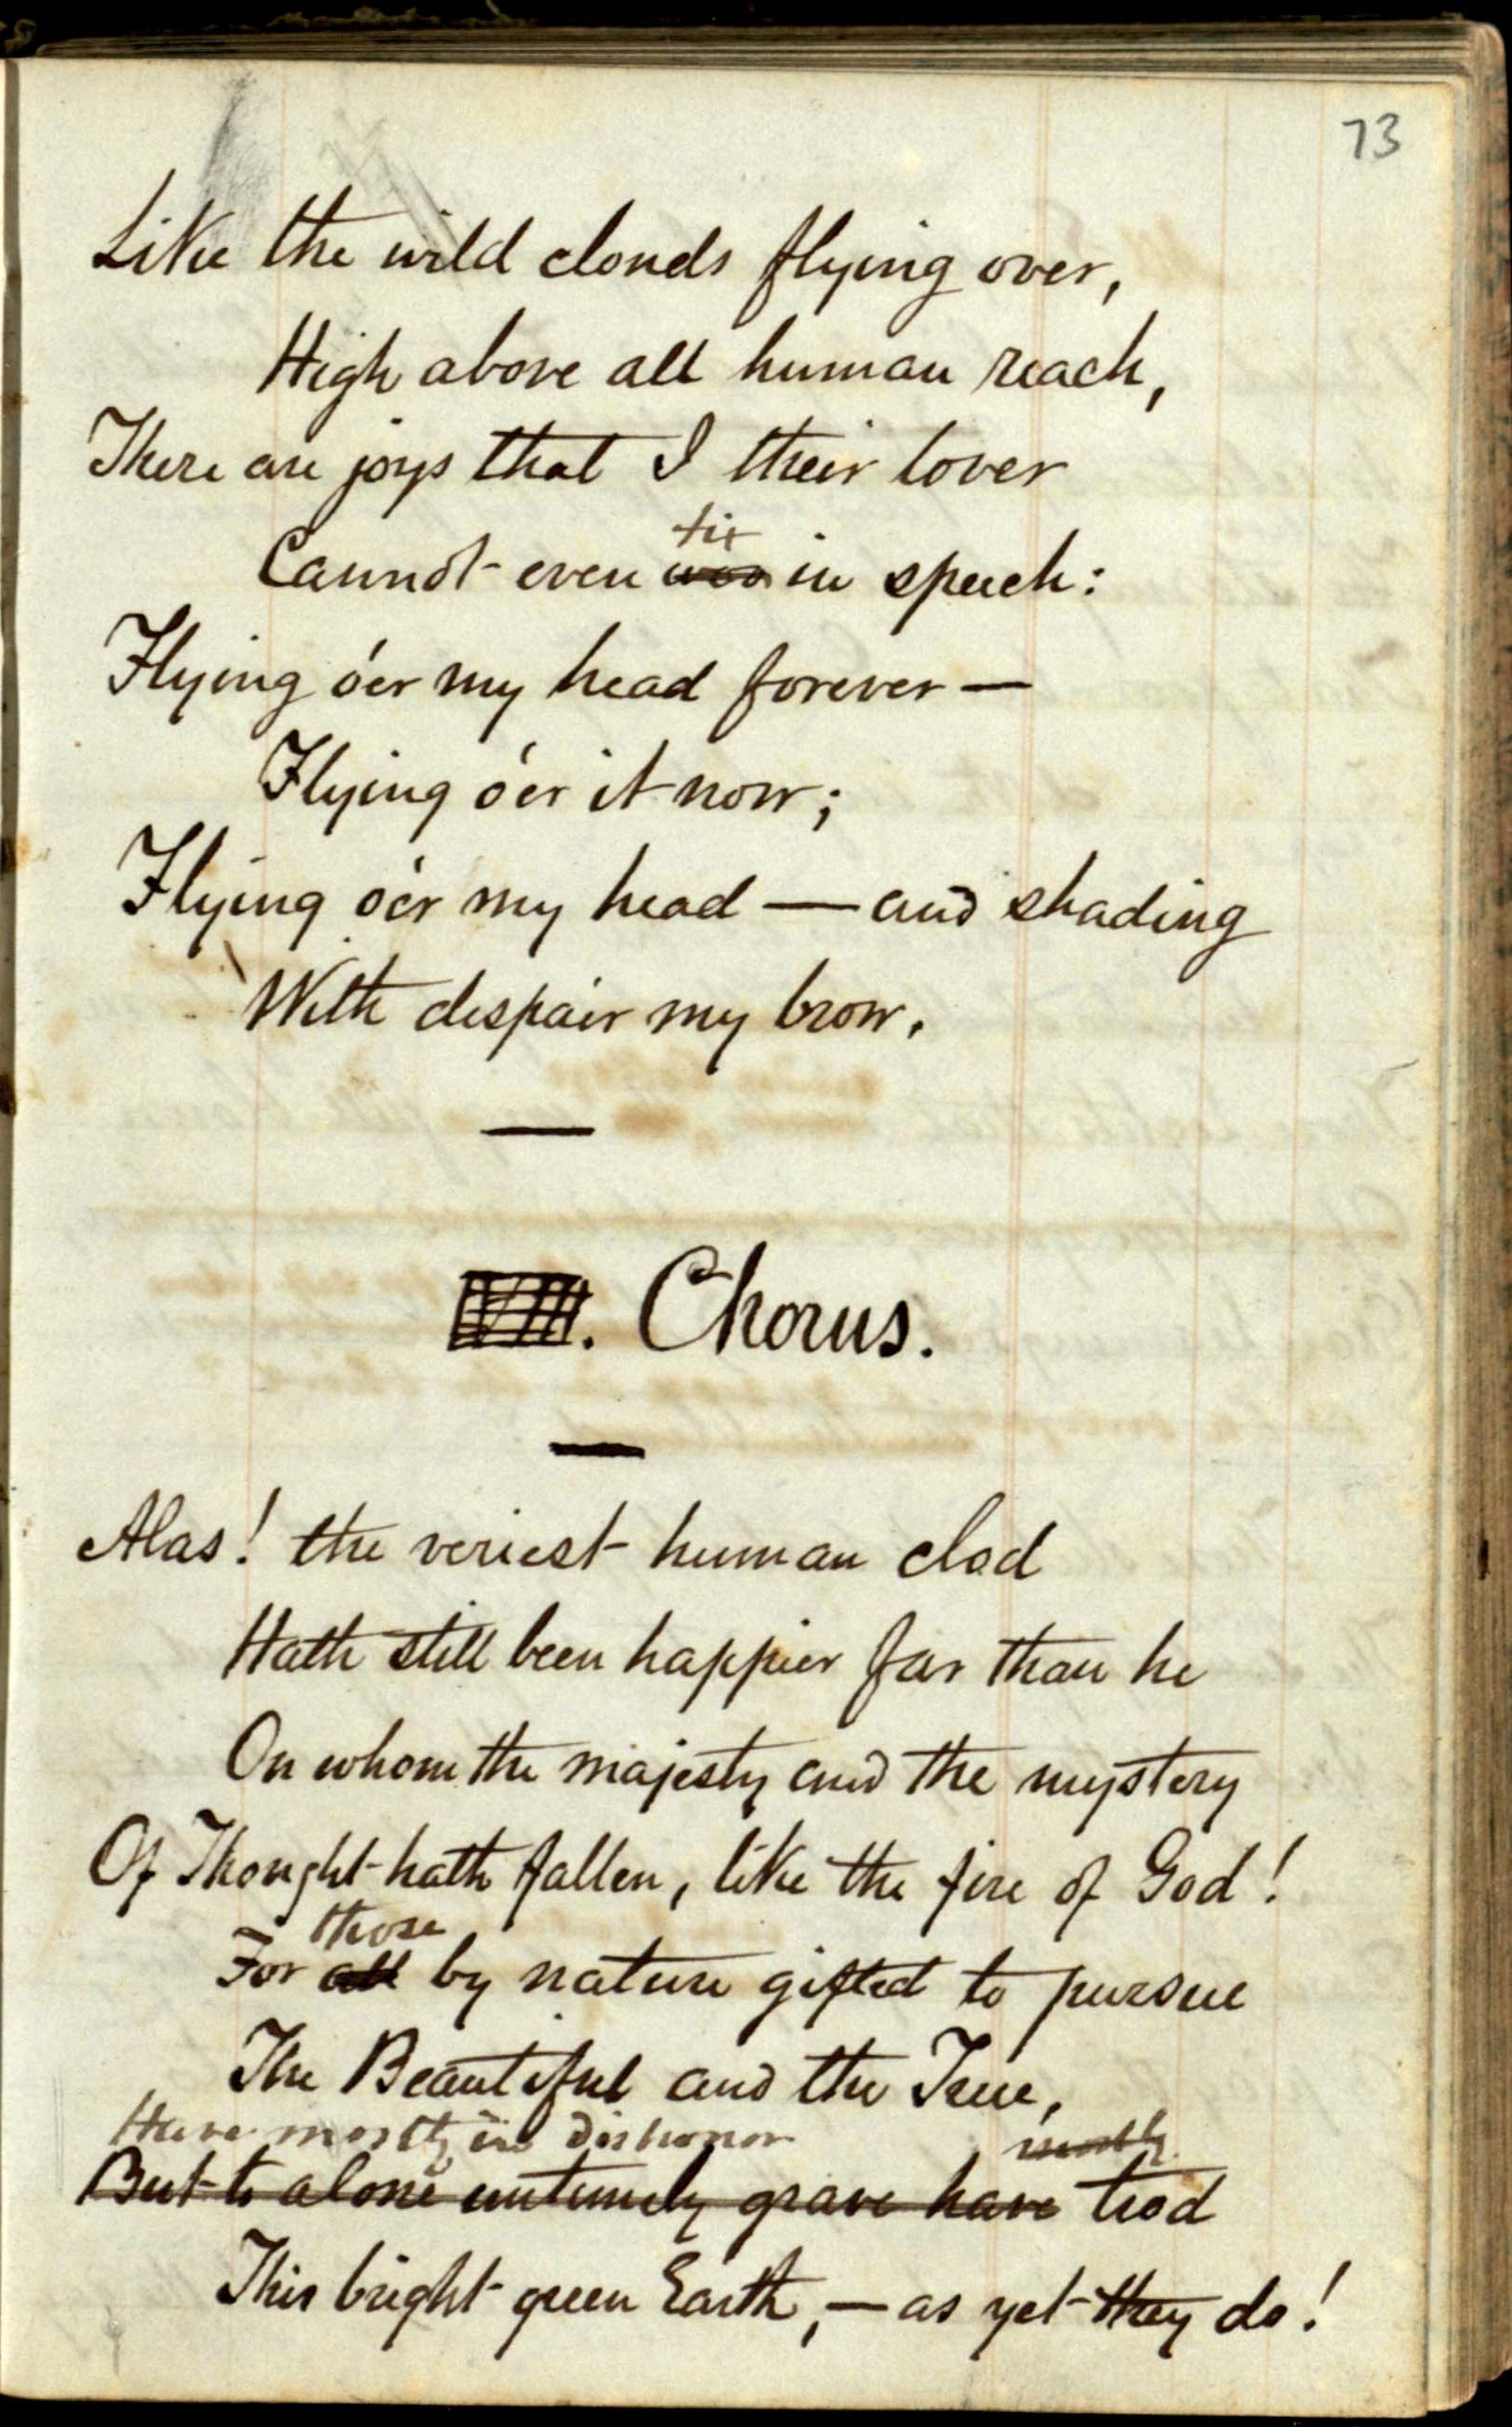 73
Like the wild clouds flying over,
High above all human reach,
There are joys that I their lover
fix
Cannot even woo in speech:
Flying o'er my head forever —
Flying o'er it now;
Flying o'er my head — and shading
With despair my brow.
—
VIII. Chorus.
—
Alas! the veriest human clod
Hath still been happier far than he
On whom the majesty and the mystery
Of Thought hath fallen, like the fire of God!
those
For all by nature gifted to pursue
The Beautiful and the True,
Have mostly in dishonor mostly
But to alone untimely grave have trod
This bright green Earth, — as yet they do!